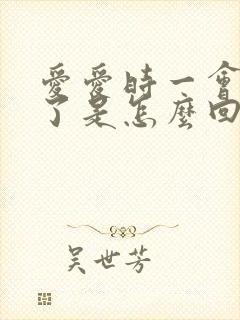 愛愛時一會
了是怎麼回
吴世芳